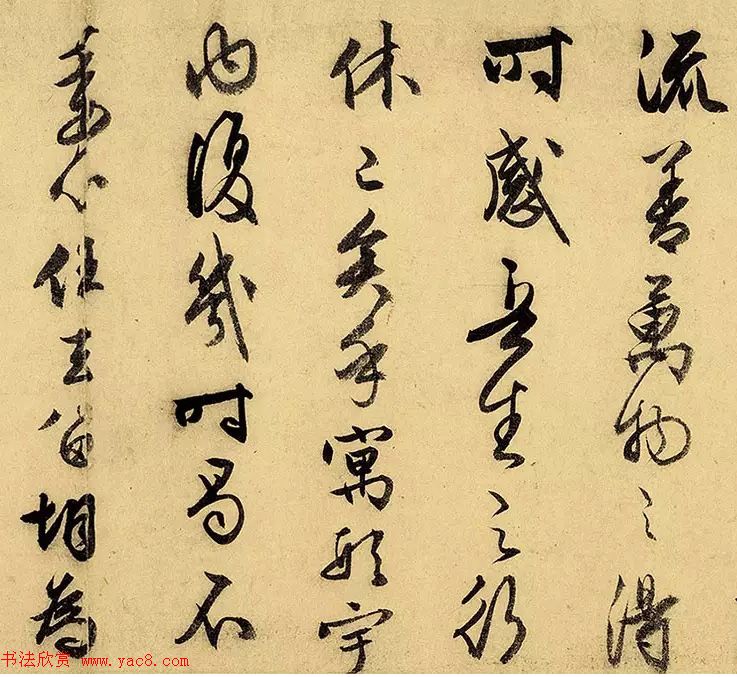 流善萬物之得
時感吾生之行
休已矣乎寓形宇
內復幾時曷不
委心任去留胡為
书法欣赏 www.yac8.com